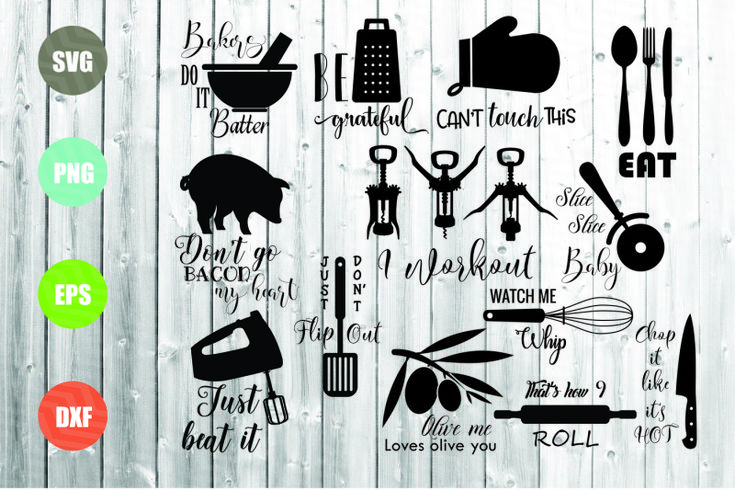 SVG
PNG
EPS
DXF
Bakers
DO
IT
Batter
BE
grateful
CAN'T touch THIS
EAT
Don't go
BACON
my heart
I Workout
Slice
Slice
Baby
JUST
DON'T
Flip Out
WATCH ME
Whip
Just
beat it
Olive me
Loves olive you
That's how I
ROLL
Chop
it
like
it's
HOT